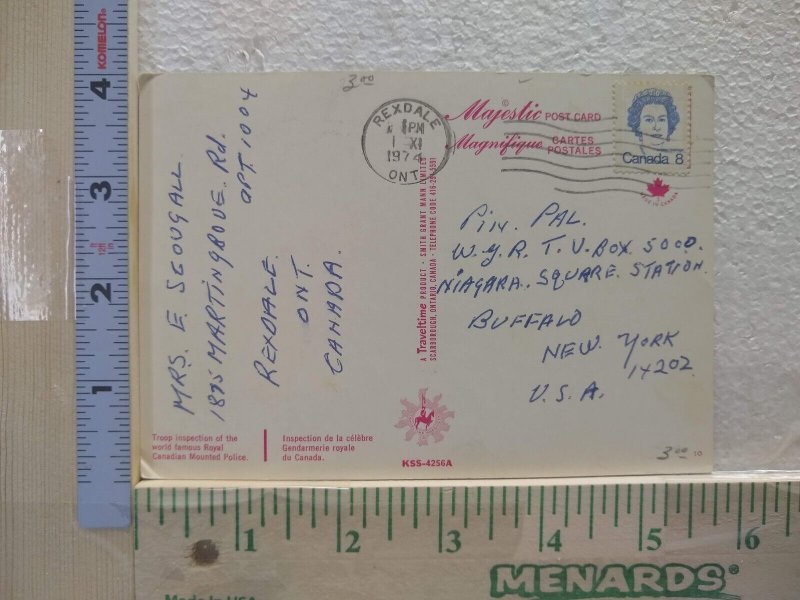 KOMELON
4
3
ft
12ft
in
2
1
3.00
REXDALE
PM
1 XI
1974
ONT
Majestic POST CARD
Magnifique CARTES POSTALES
Canada 8
MADE IN CANADA
MRS. E. SCOUGALL
1875 MARTINGROVE Rd.
APT. 1004
REXDALE.
ONT.
CANADA.
A Traveltime PRODUCT · SMITH GRANT MANN LIMITED
SCARBOROUGH, ONTARIO, CANADA · TELEPHONE CODE 416
PIN. PAL.
W.G.R. T.V. BOX. 5000.
NIAGARA. SQUARE. STATION.
BUFFALO
NEW. YORK
14202
U.S.A.
Troop inspection of the
world famous Royal
Canadian Mounted Police.
Inspection de la célèbre
Gendarmerie royale
du Canada.
KSS-4256A
3.00 10
1 2 3 4 5 6
MENARDS
Made in USA